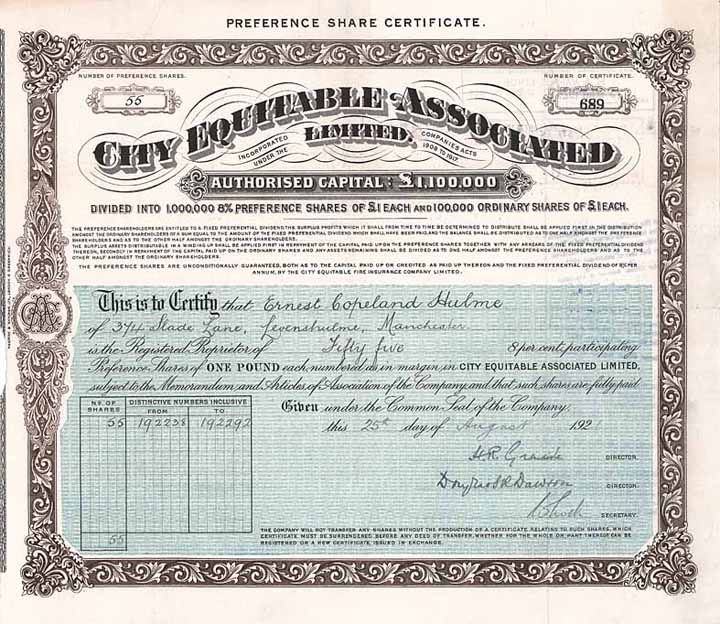 PREFERENCE SHARE CERTIFICATE.
NUMBER OF PREFERENCE SHARES.
55
NUMBER OF CERTIFICATE.
689
CITY EQUITABLE ASSOCIATED
LIMITED.
INCORPORATED UNDER THE
COMPANIES ACTS 1908 TO 1917.
AUTHORISED CAPITAL: £1,100,000
DIVIDED INTO 1,000,000 8% PREFERENCE SHARES OF £1 EACH AND 100,000 ORDINARY SHARES OF £1 EACH.
THE PREFERENCE SHAREHOLDERS ARE ENTITLED TO A FIXED PREFERENTIAL DIVIDEND, THE SURPLUS PROFITS WHICH IT SHALL FROM TIME TO TIME BE DETERMINED TO DISTRIBUTE SHALL BE APPLIED FIRST IN THE DISTRIBUTION
AMONGST THE ORDINARY SHAREHOLDERS OF A SUM EQUAL TO THE AMOUNT OF THE FIXED PREFERENTIAL DIVIDEND WHICH SHALL HAVE BEEN PAID, AND THE BALANCE SHALL BE DISTRIBUTED AS TO ONE HALF AMONGST THE PREFERENCE
SHAREHOLDERS AND AS TO THE OTHER HALF AMONGST THE ORDINARY SHAREHOLDERS.
THE SURPLUS ASSETS DISTRIBUTABLE IN A WINDING UP SHALL BE APPLIED FIRST IN REPAYMENT OF THE CAPITAL PAID UPON THE PREFERENCE SHARES TOGETHER WITH ANY ARREARS OF THE FIXED PREFERENTIAL DIVIDEND
THEREON, NEXT IN REPAYMENT OF THE CAPITAL PAID UP ON THE ORDINARY SHARES AND ANY ASSETS REMAINING SHALL BE DIVIDED AS TO ONE HALF AMONGST THE PREFERENCE SHAREHOLDERS AND AS TO THE
OTHER HALF AMONGST THE ORDINARY SHAREHOLDERS.
THE PREFERENCE SHARES ARE UNCONDITIONALLY GUARANTEED, BOTH AS TO THE CAPITAL PAID UP OR CREDITED AS PAID UP THEREON AND THE FIXED PREFERENTIAL DIVIDEND OF 8% PER
ANNUM, BY THE CITY EQUITABLE FIRE INSURANCE COMPANY LIMITED.
This is to Certify that Ernest Copeland Hulme
of 344 Slade Lane, Levenshulme, Manchester
is the Registered Proprietor of Fifty five 8 per cent. participating
Preference Shares of ONE POUND each, numbered as in margin, in CITY EQUITABLE ASSOCIATED LIMITED,
subject to the Memorandum and Articles of Association of the Company, and that such shares are fully paid
Given under the Common Seal of the Company.
this 25th day of August 192
NO. OF SHARES
DISTINCTIVE NUMBERS INCLUSIVE
FROM TO
55 192238 192292
55
DIRECTOR.
DIRECTOR.
SECRETARY.
THE COMPANY WILL NOT TRANSFER ANY SHARES WITHOUT THE PRODUCTION OF A CERTIFICATE RELATING TO SUCH SHARES, WHICH
CERTIFICATE MUST BE SURRENDERED BEFORE ANY DEED OF TRANSFER, WHETHER FOR THE WHOLE OR PART THEREOF CAN BE
REGISTERED OR A NEW CERTIFICATE ISSUED IN EXCHANGE.